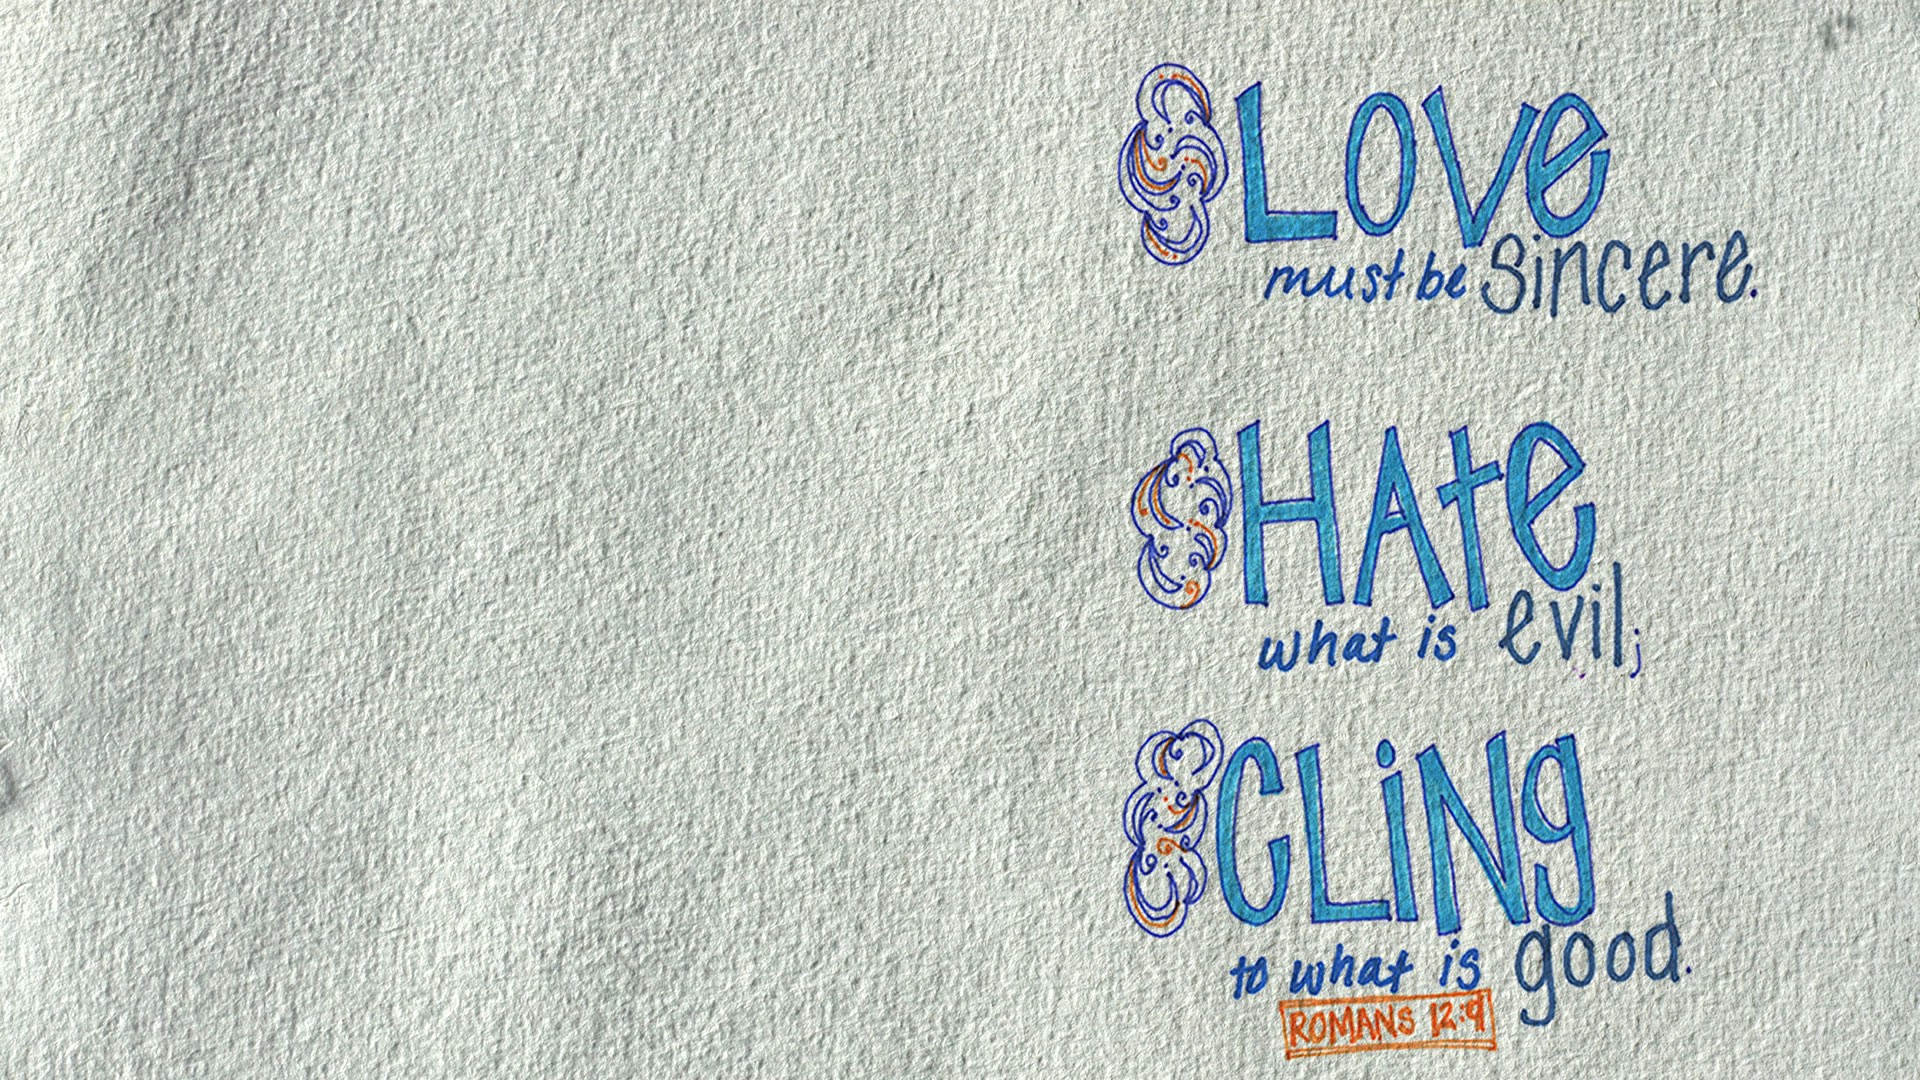 LOVe
must be sincere.
HAte
what is evil;
CLiNg
to what is good.
ROMANS 12:9